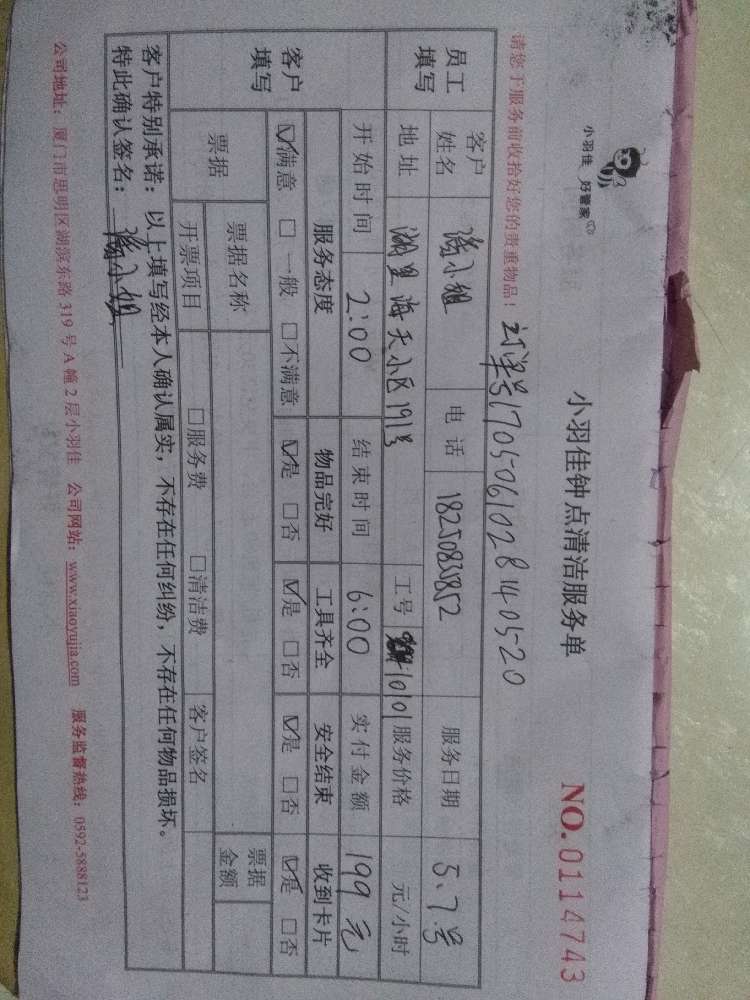 小羽佳 好管家
小羽佳钟点清洁服务单
NO.0114743
请您于服务前收拾好您的贵重物品！
订单号170506102840520
员工填写
客户姓名 潘小姐 电话 18250835852 服务日期 5.7号
地址 湖里海天小区191号 工号 10101 服务价格 元/小时
客户填写
开始时间 2:00 结束时间 6:00 实付金额 199元
服务态度 物品完好 工具齐全 安全结束 收到卡片
☑满意 □一般 □不满意 ☑是 □否 ☑是 □否 ☑是 □否 ☑是 □否
票据 票据名称 票据金额
开票项目 □服务费 □清洁费 客户签名
客户特别承诺：以上填写经本人确认属实，不存在任何纠纷，不存在任何物品损坏。
特此确认签名：潘小姐
公司地址：厦门市思明区湖滨东路319号A幢2层小羽佳 公司网站：www.xiaoyujia.com 服务监督热线：0592-5888123